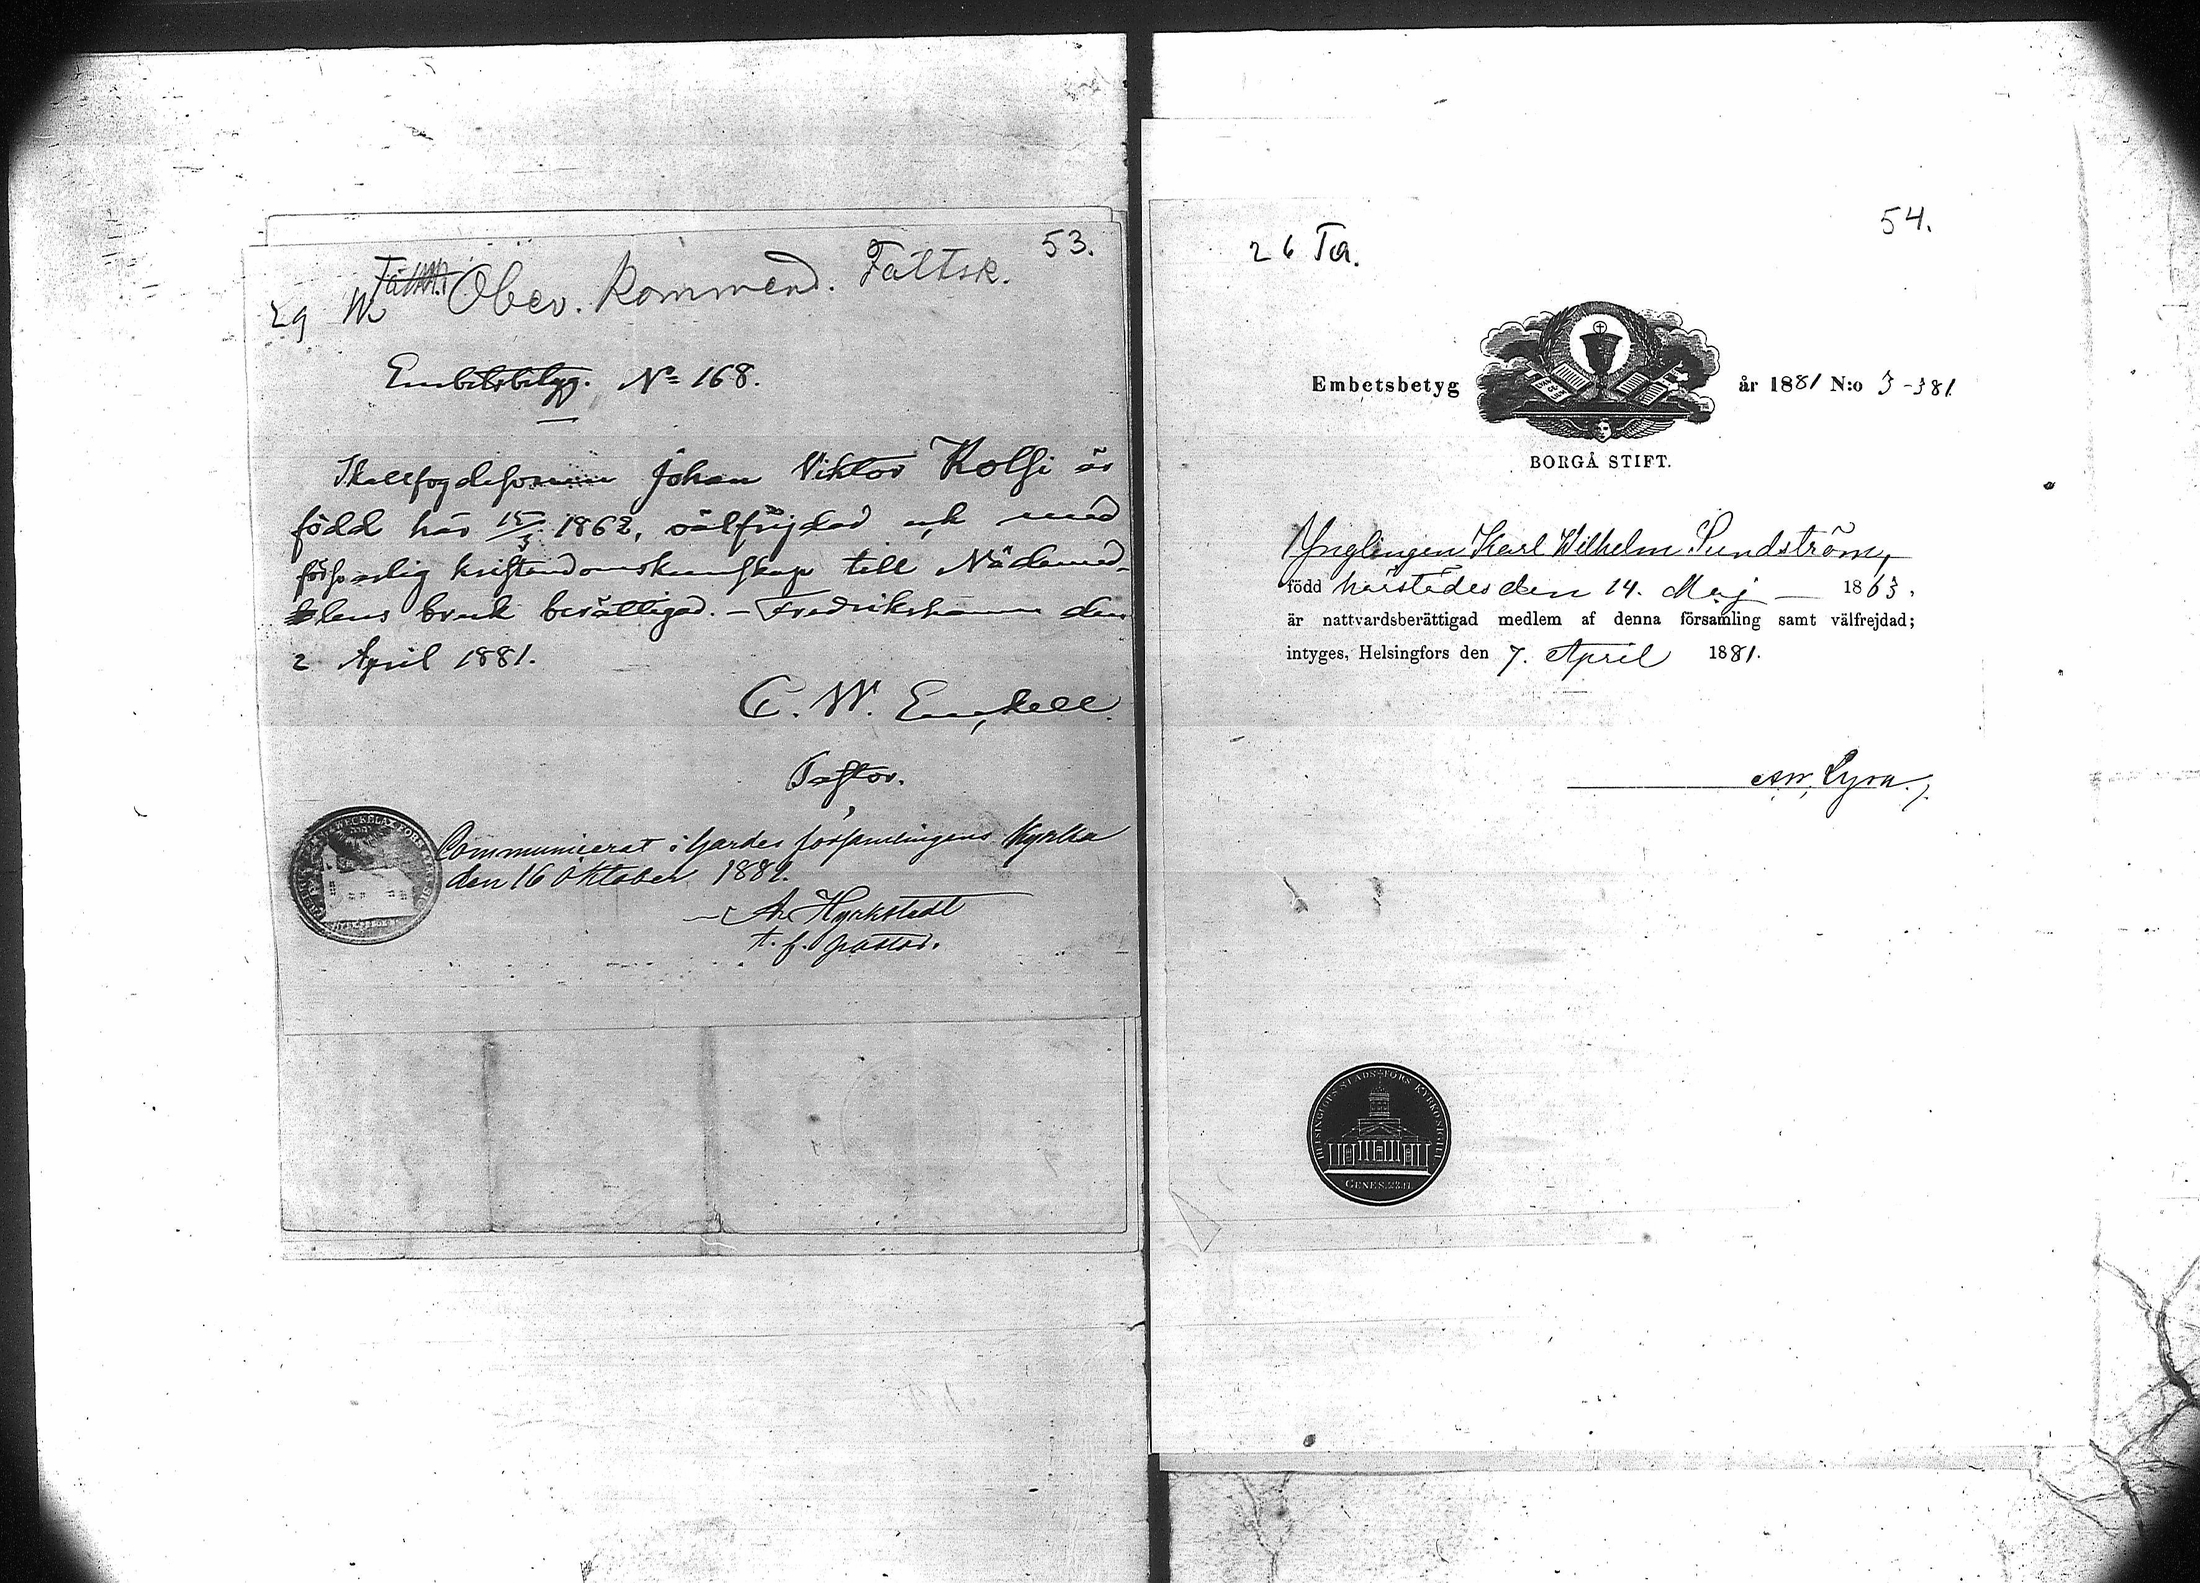 53.
Ober. Kommend. Fältsk.
Embetsbetyg. No 168.
Johan Viktor Kolhi är
född här 15/3 1862, välfrejdad och med
försvarlig kristendomskunskap till Nådamed-
lens bruk berättigad. – Fredrikshamn den
2 April 1881.
C. W. Enckell.
Pastor.
Communicerat i Gardesförsamlingens kyrka
den 16 Oktober 1881.
Hyrkstedt
t. f. pastor.
54.
26 Ta.
Embetsbetyg år 1881 N:o 3-381
BORGÅ STIFT.
Ynglingen Karl Wilhelm Sundström,
född härstädes den 14. Maj — 1863.
är nattvardsberättigad medlem af denna församling samt välfrejdad;
intyges, Helsingfors den 7. April 1881.
Lyra.
HELSINGFORS STADS FÖRS KYRKO SIGILL
GENES.